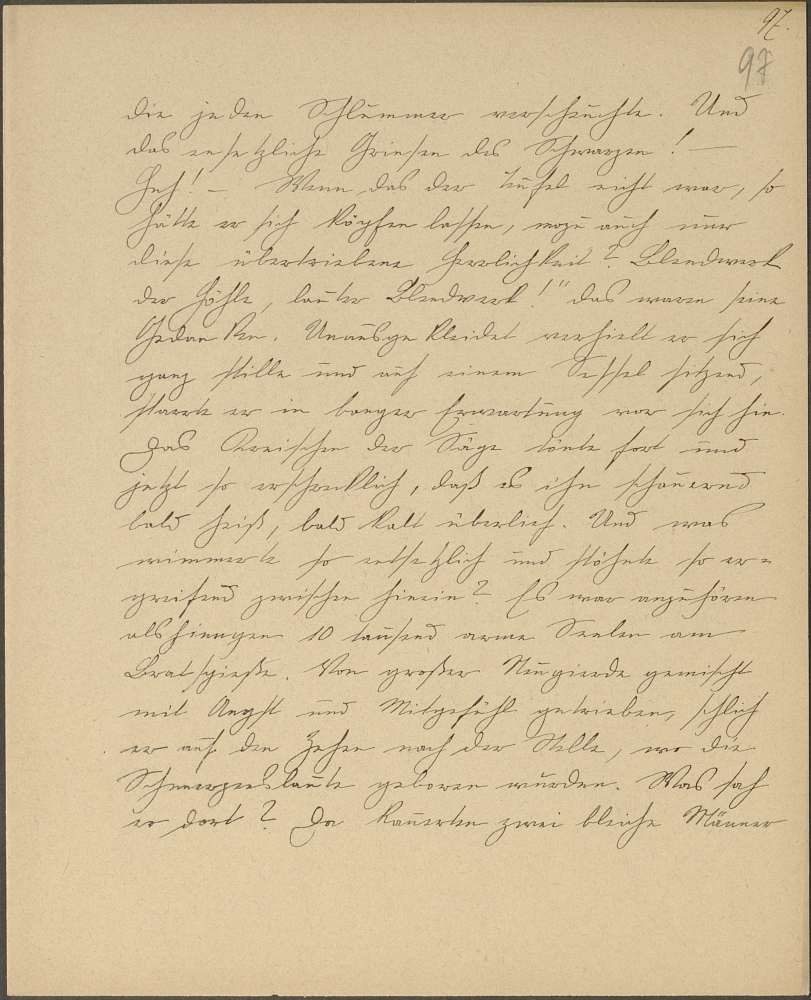 97.
97
die jeden Schlummer verscheuchte. Und
das entsetzliche Grinsen des Schwarzen! —
Huh! — Wenn das der Teufel nicht war, so
hätte er sich köpfen lassen, wozu auch nur
diese übertriebene Herrlichkeit? Blendwerk
der Hölle, lauter Blendwerk!" das waren seine
Gedanken. Unausgekleidet verhielt er sich
ganz stille und auf einem Sessel sitzend,
starrte er in banger Erwartung vor sich hin.
Das Kreischen der Säge tönte fort und
jetzt so erschrecklich, daß es ihn schauernd
bald heiß, bald kalt überlief. Und was
wimmerte so entsetzlich und stöhnte so er=
greifend zwischen hinein? Es war anzuhören
als hiengen 10 tausend arme Seelen am
Bratspieße. Von großer Neugierde gemischt
mit Angst und Mitgefühl getrieben, schlich
er auf den Zehen nach der Stelle, wo die
Schmerzenslaute geboren wurden. Was sah
er dort? Da kauerten zwei bleiche Männer